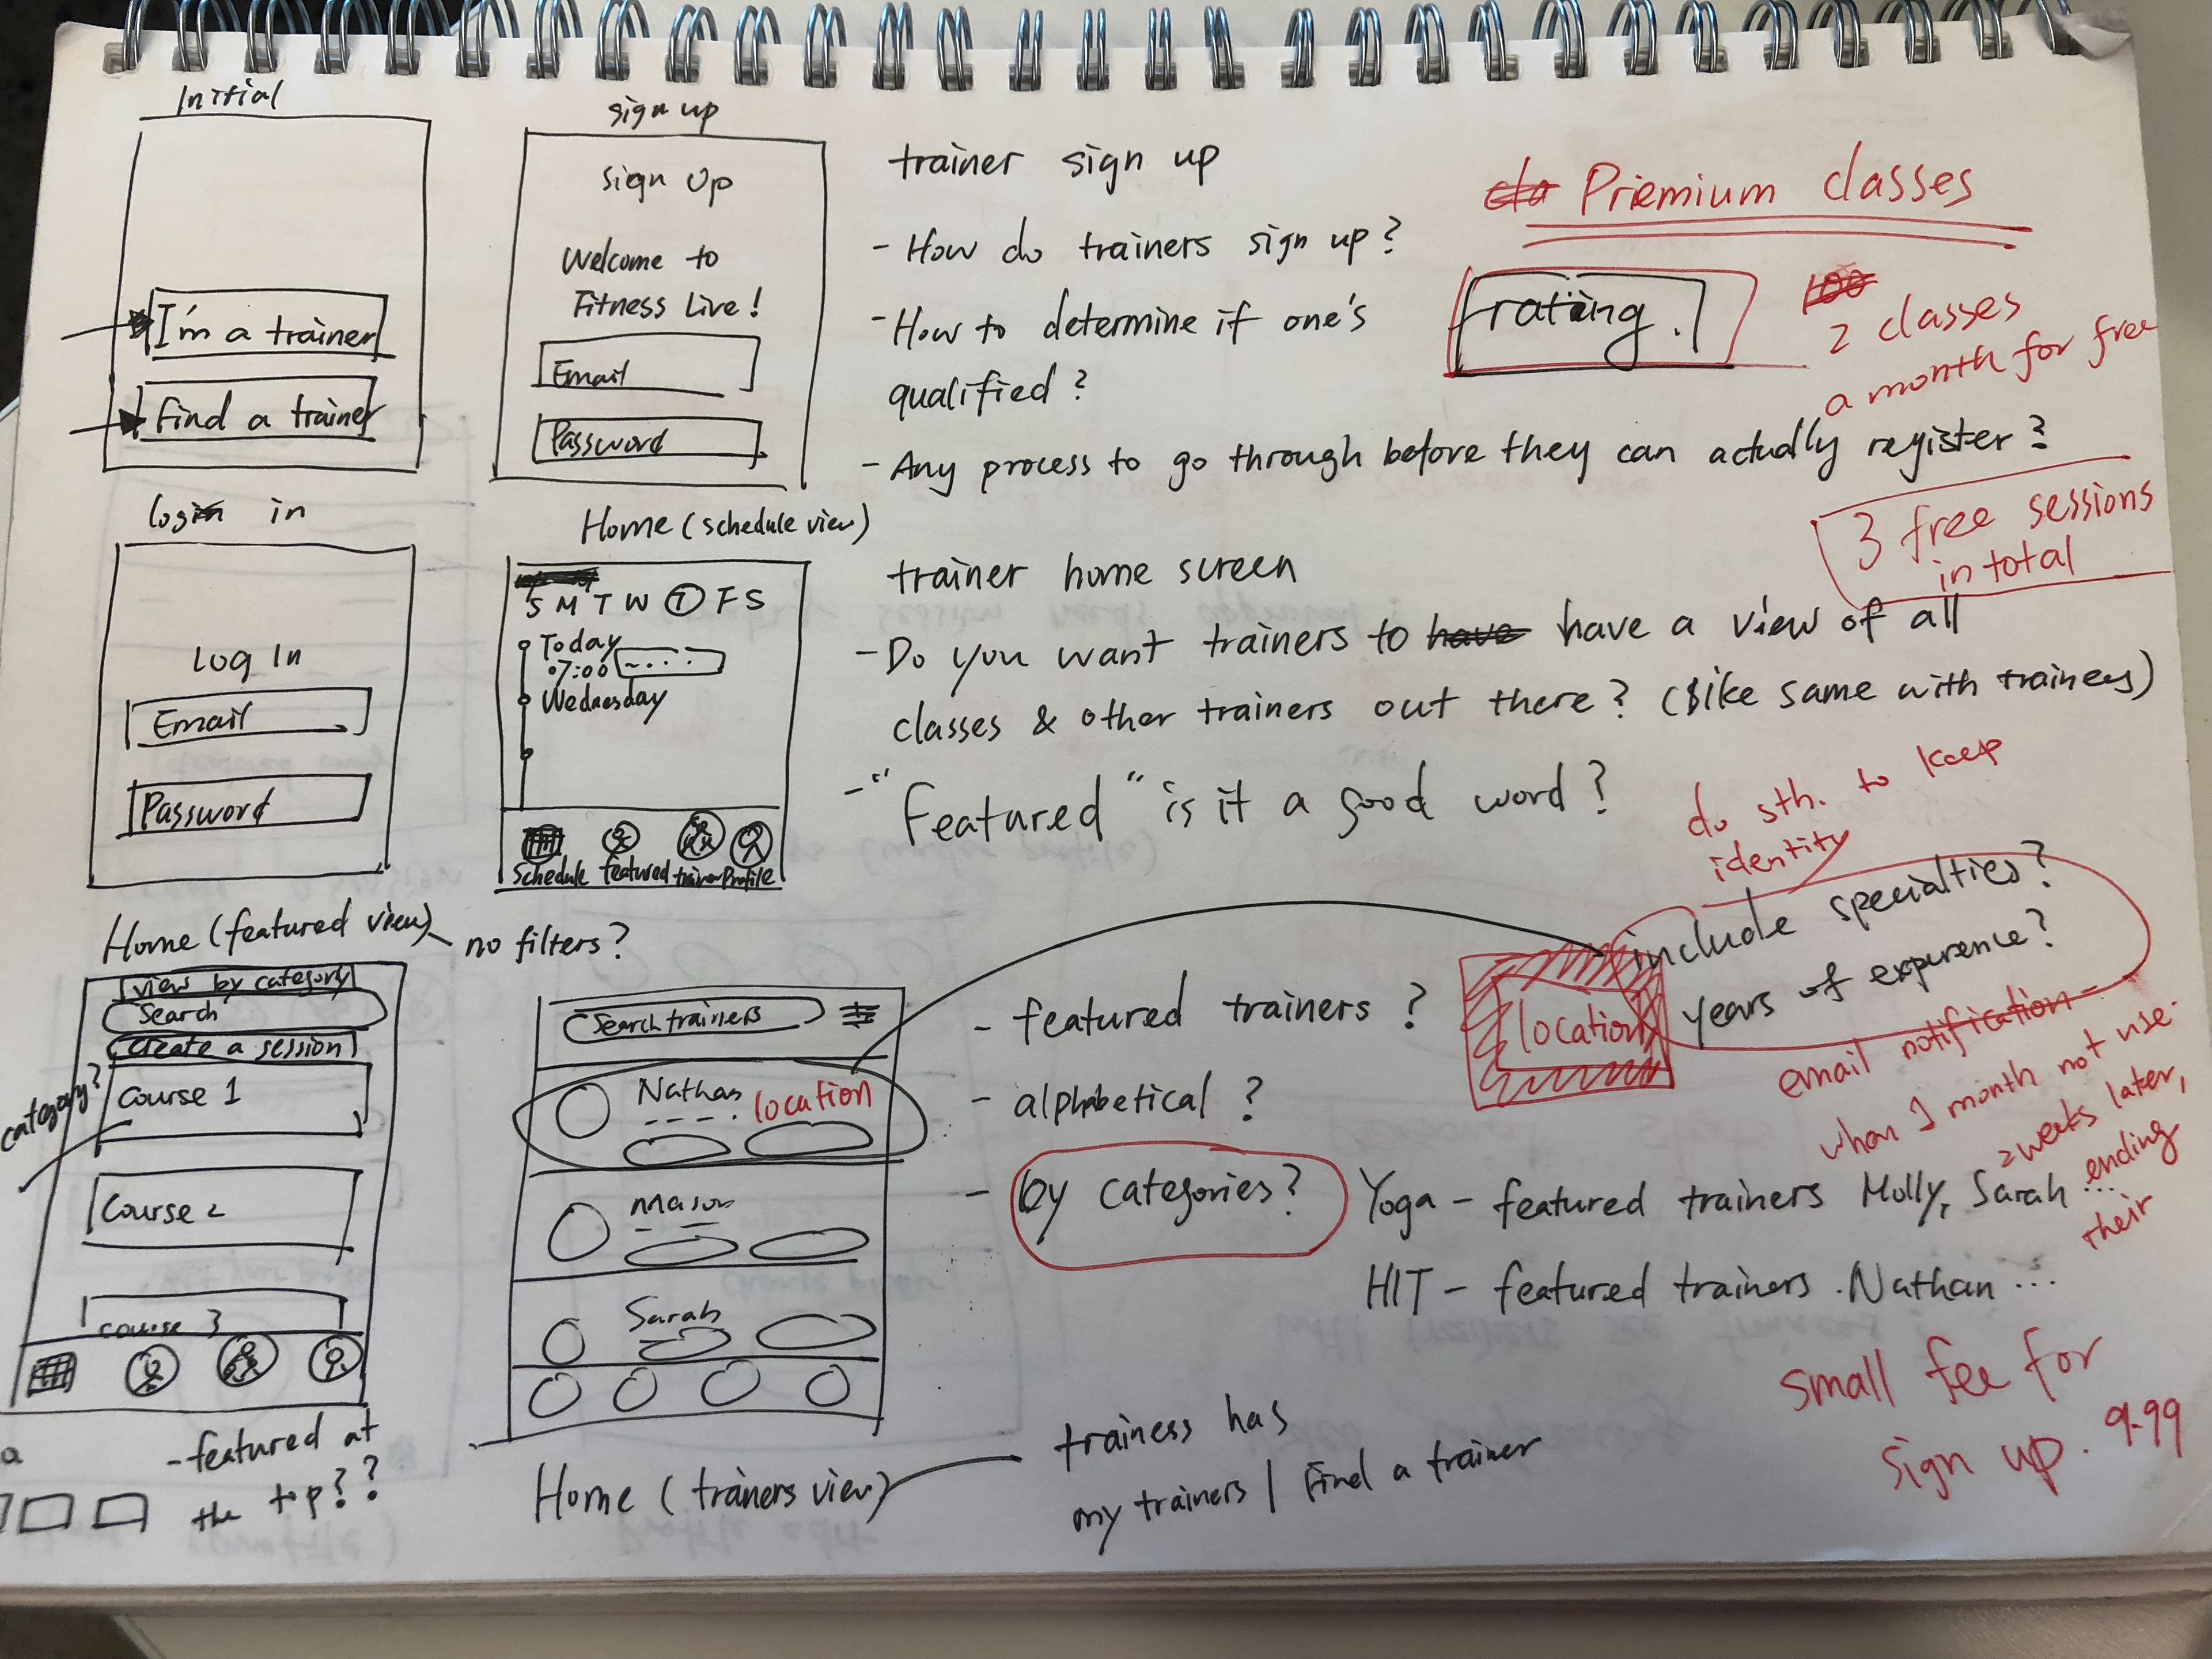 Initial
I'm a trainer
Find a trainer
sign up
Sign Up
Welcome to
Fitness Live!
Email
Password
trainer sign up
- How do trainers sign up?
- How to determine if one's
qualified?
- Any process to go through before they can actually register?
Priemium classes
rating.
100
2 classes
a month for free
3 free sessions
in total
login in
Log In
Email
Password
Home (schedule view)
S M T W T F S
Today
07:00
Wednesday
Schedule featured trainer Profile
trainer home screen
- Do you want trainers to have have a view of all
classes & other trainers out there? (like same with trainees)
- "Featured" is it a good word?
do sth. to keep
identity
include specialties?
years of experience?
location
email notification
when 1 month not use.
2 weeks later,
ending
their
Home (featured view) - no filters?
view by category
Search
Create a session
category?
Course 1
Course 2
course 3
- featured at
the top??
a
Search trainers
Nathan
location
Mason
Sarah
Home (trainers view)
trainess has
my trainers / Find a trainer
- featured trainers ?
- alphabetical ?
- by categories?
Yoga - featured trainers Molly, Sarah ...
HIT - featured trainers. Nathan ...
small fee for
sign up. 9.99